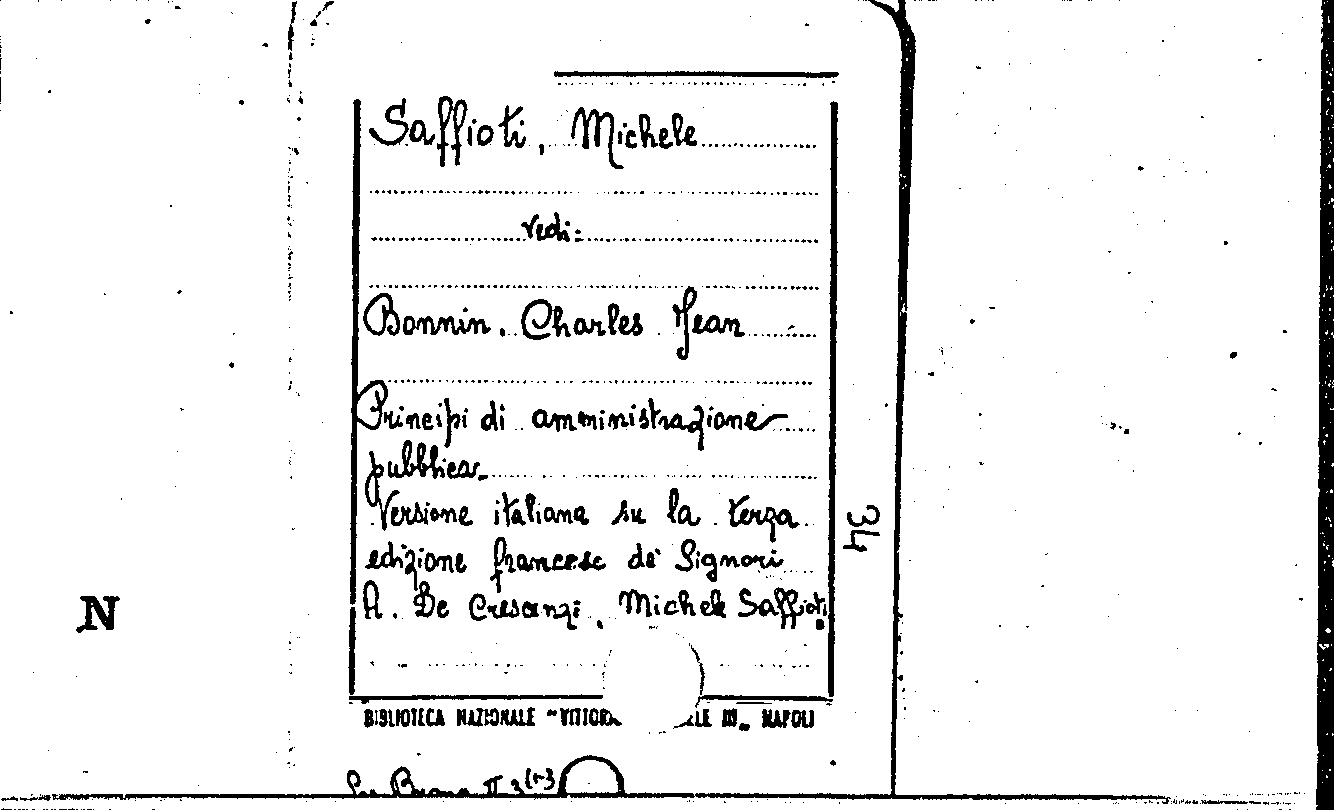 Saffioti, Michele
vedi:
Bonnin, Charles Jean
Principi di amministrazione
pubblica.
Versione italiana su la terza
edizione francese de' Signori
A. De Crescenzi, Michele Saffioti.
34
N
BIBLIOTECA NAZIONALE "VITTORIO NAPOLI